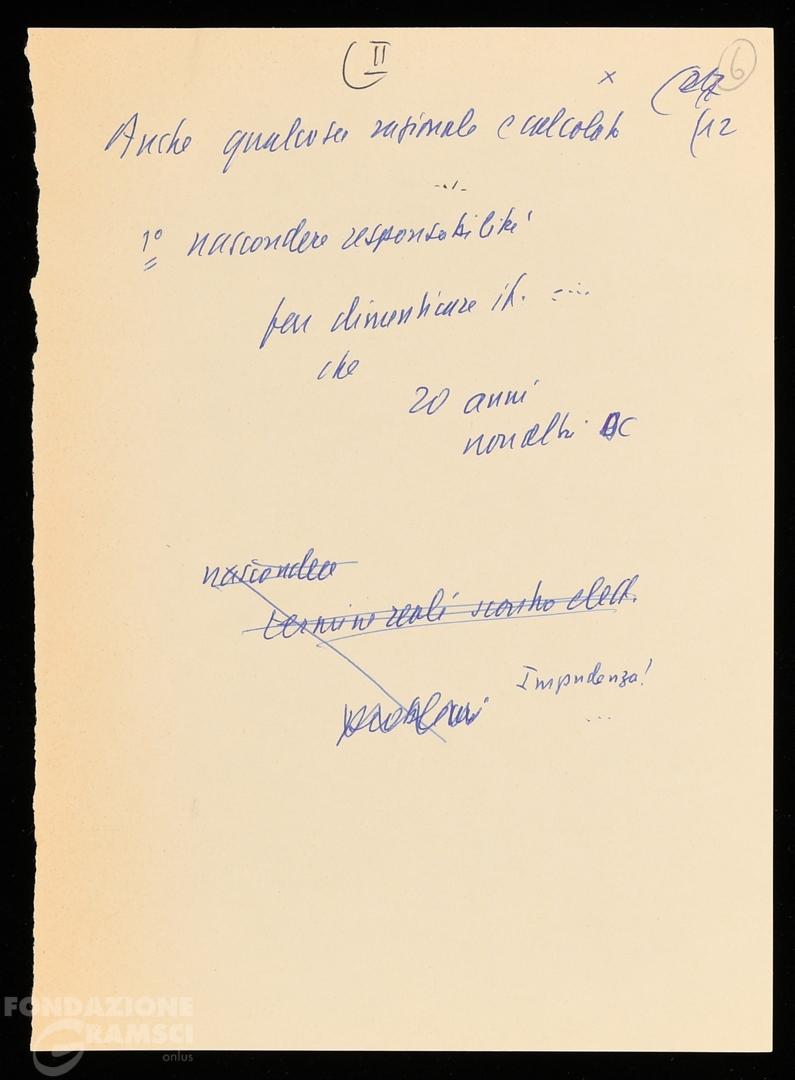 II
6
x
Anche qualcosa razionale e calcolato
12
1° nascondere responsabilità
far dimenticare it. ....
che
20 anni
non altri DC
nascondere
termini reali scontro elett.
problemi
Impudenza!
...
FONDAZIONE
GRAMSCI
onlus